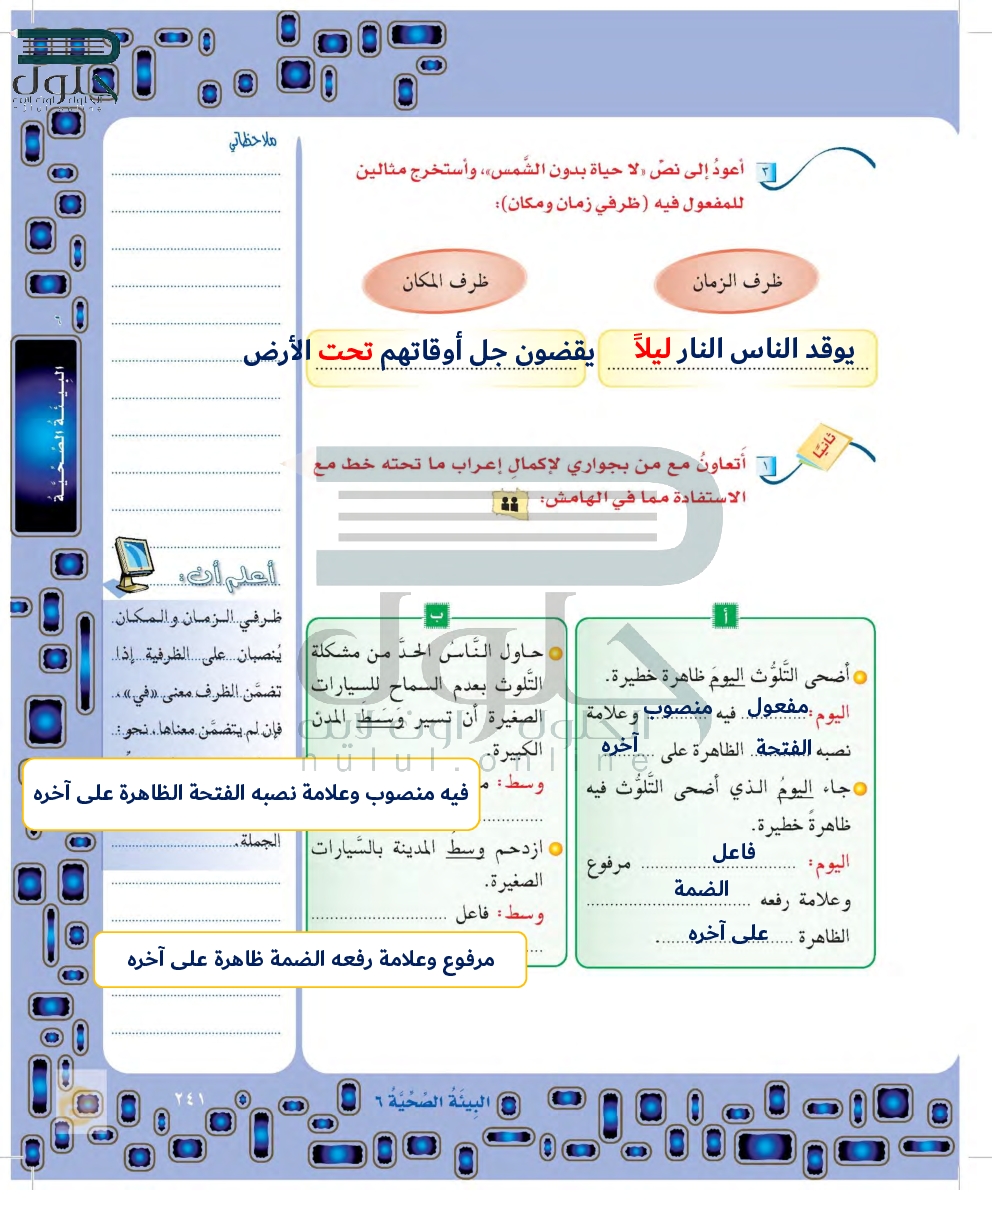 حلول
الحلول اون لاين
hulul.online
ملاحظاتي
٣
أعودُ إلى نصّ «لا حياة بدون الشَّمس»، وأستخرج مثالين
للمفعول فيه (ظرفي زمان ومكان):
ظرف الزمان
ظرف المكان
يوقد الناس النار ليلاً
يقضون جل أوقاتهم تحت الأرض
البيئة الصحية
ثانيًا
١
أتعاونُ مع من بجواري لإكمالِ إعراب ما تحته خط مع
الاستفادة مما في الهامش:
أ
أضحى التَّلوُّث اليومَ ظاهرة خطيرة.
اليوم: مفعول فيه منصوب وعلامة
نصبه الفتحة الظاهرة على آخره
جاء اليومُ الذي أضحى التَّلوُّث فيه
ظاهرةً خطيرة.
اليوم: فاعل مرفوع
وعلامة رفعه الضمة
الظاهرة على آخره.
ب
حاول النَّاسُ الحدَّ من مشكلة
التَّلوث بعدم السماح للسيارات
الصغيرة أن تسير وَسَطَ المدن
الكبيرة.
وسط:
فيه منصوب وعلامة نصبه الفتحة الظاهرة على آخره
ازدحم وسطُ المدينة بالسَّيارات
الصغيرة.
وسط: فاعل
مرفوع وعلامة رفعه الضمة ظاهرة على آخره
أعلم أن:
ظرفي الزمان والمكان
يُنصبان على الظرفية إذا
تضمَّن الظرف معنى «في»،
فإن لم يتضمَّن معناها، نحو:
الجملة.
حلول
الحلول اون لاين
hulul.online
البِيئَةُ الصِّحِّيَّةُ ٦
٢٤١